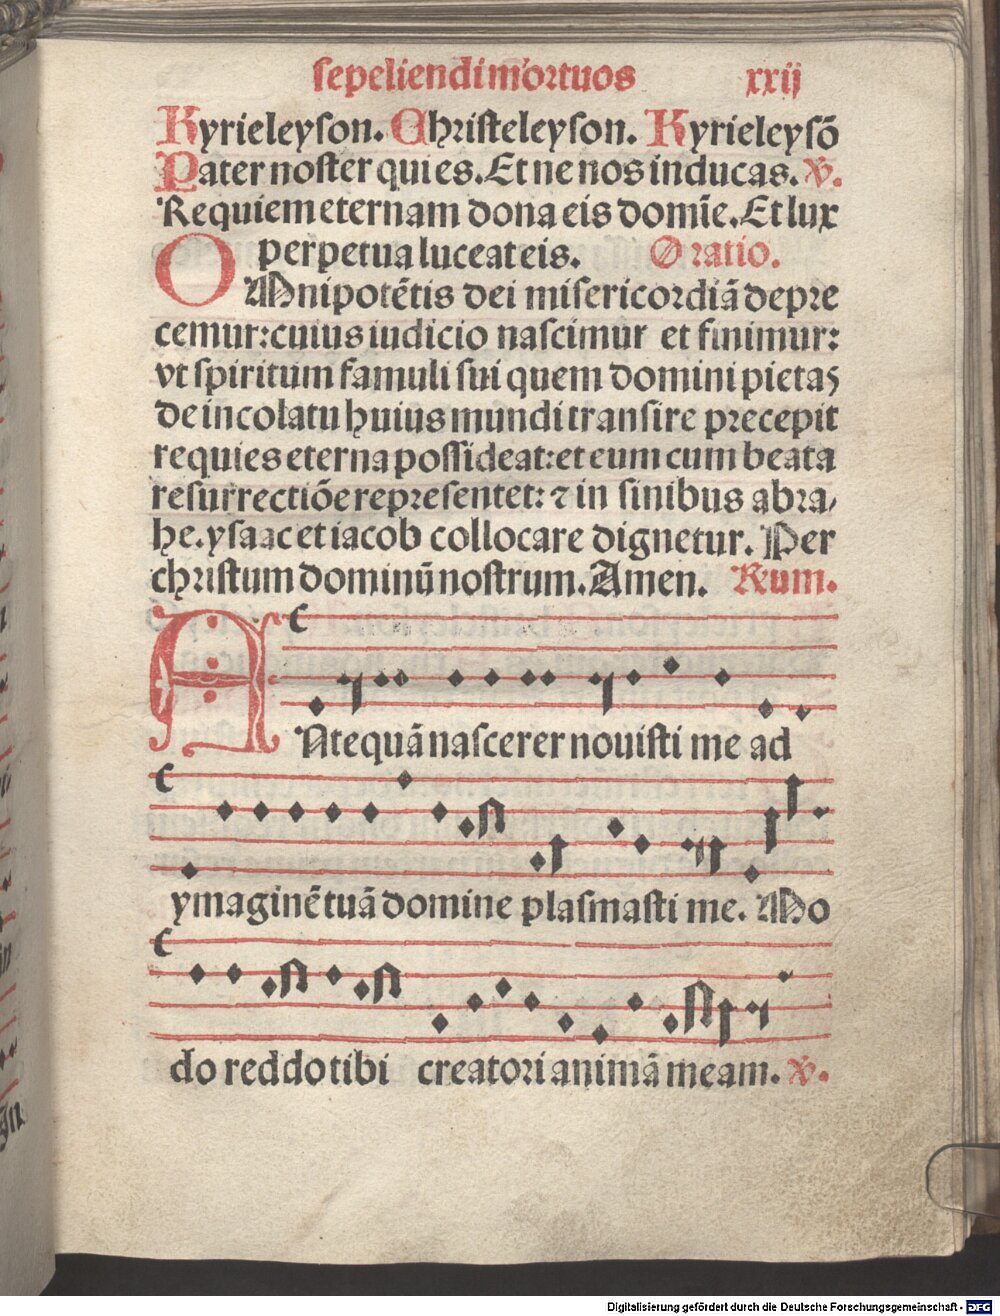 sepeliendi mortuos xxij
Kyrieleyson. Christeleyson. Kyrieleysõ
Pater noster qui es. Et ne nos inducas. ℣.
Requiem eternam dona eis domĩe. Et lux
perpetua luceat eis. Oratio.
OMnipotẽtis dei misericordiã depre
cemur: cuius iudicio nascimur et finimur:
vt spiritum famuli sui quem domini pietas
de incolatu huius mundi transire precepit
requies eterna possideat: et eum cum beata
resurrectiõe representet: ⁊ in sinibus abra/
he. ysaac et iacob collocare dignetur. Per
christum dominũ nostrum. Amen. Rum.
ANtequã nascerer nouisti me ad
ymaginẽ tuã domine plasmasti me. Mo
do reddo tibi creatori animã meam. ℣.
Jn
Digitalisierung gefördert durch die Deutsche Forschungsgemeinschaft - DFG